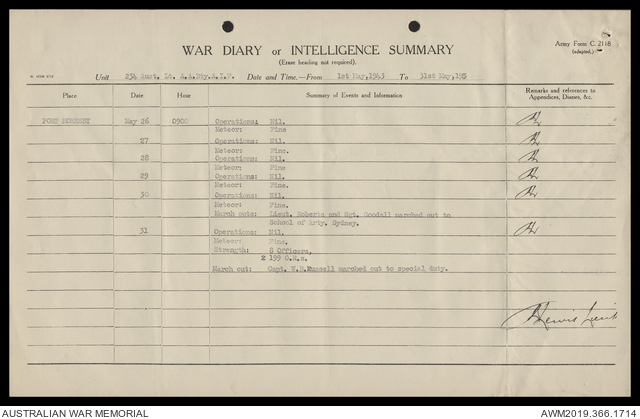 WAR DIARY or INTELLIGENCE SUMMARY
(Erase heading not required).
Army Form C. 2118
(adapted.)
Unit 234 Aust. Lt. A.A.Bty.A.I.F. Date and Time.—From 1st May,1943 To 31st May,195
Place Date Hour Summary of Events and Information Remarks and references to
Appendices, Diaries, &c.
PORT MORESBY May 26 0900 Operations: Nil.
Meteor: Fine
27 Operations: Nil.
Meteor: Fine.
28 Operations: Nil.
Meteor: Fine
29 Operations: Nil.
Meteor: Fine.
30 Operations: Nil.
Meteor: Fine.
March outs: Lieut. Roberts and Sgt. Goodall marched out to
School of Arty. Sydney.
31 Operations: Nil.
Meteor: Fine.
Strength: 8 Officers,
2 199 O.R.s.
March out: Capt. Russell marched out to special duty.
Lewis Lieut
AUSTRALIAN WAR MEMORIAL
AWM2019.366.1714